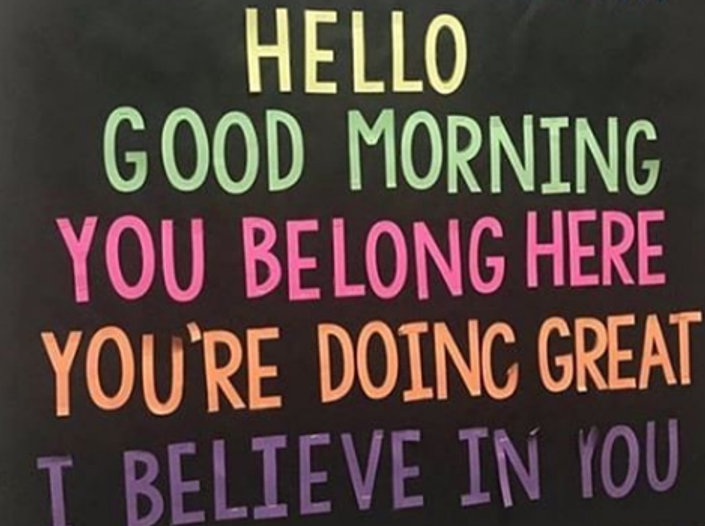 HELLO
GOOD MORNING
YOU BELONG HERE
YOU'RE DOING GREAT
I BELIEVE IN YOU